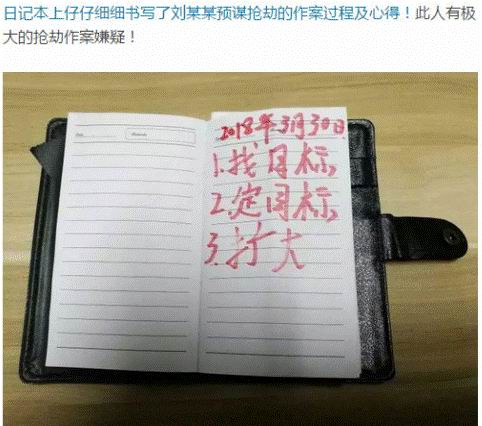 日记本上仔仔细细书写了刘某某预谋抢劫的作案过程及心得！此人有极
大的抢劫作案嫌疑！
2018年3月30日
1.找目标
2.定目标
3.打大